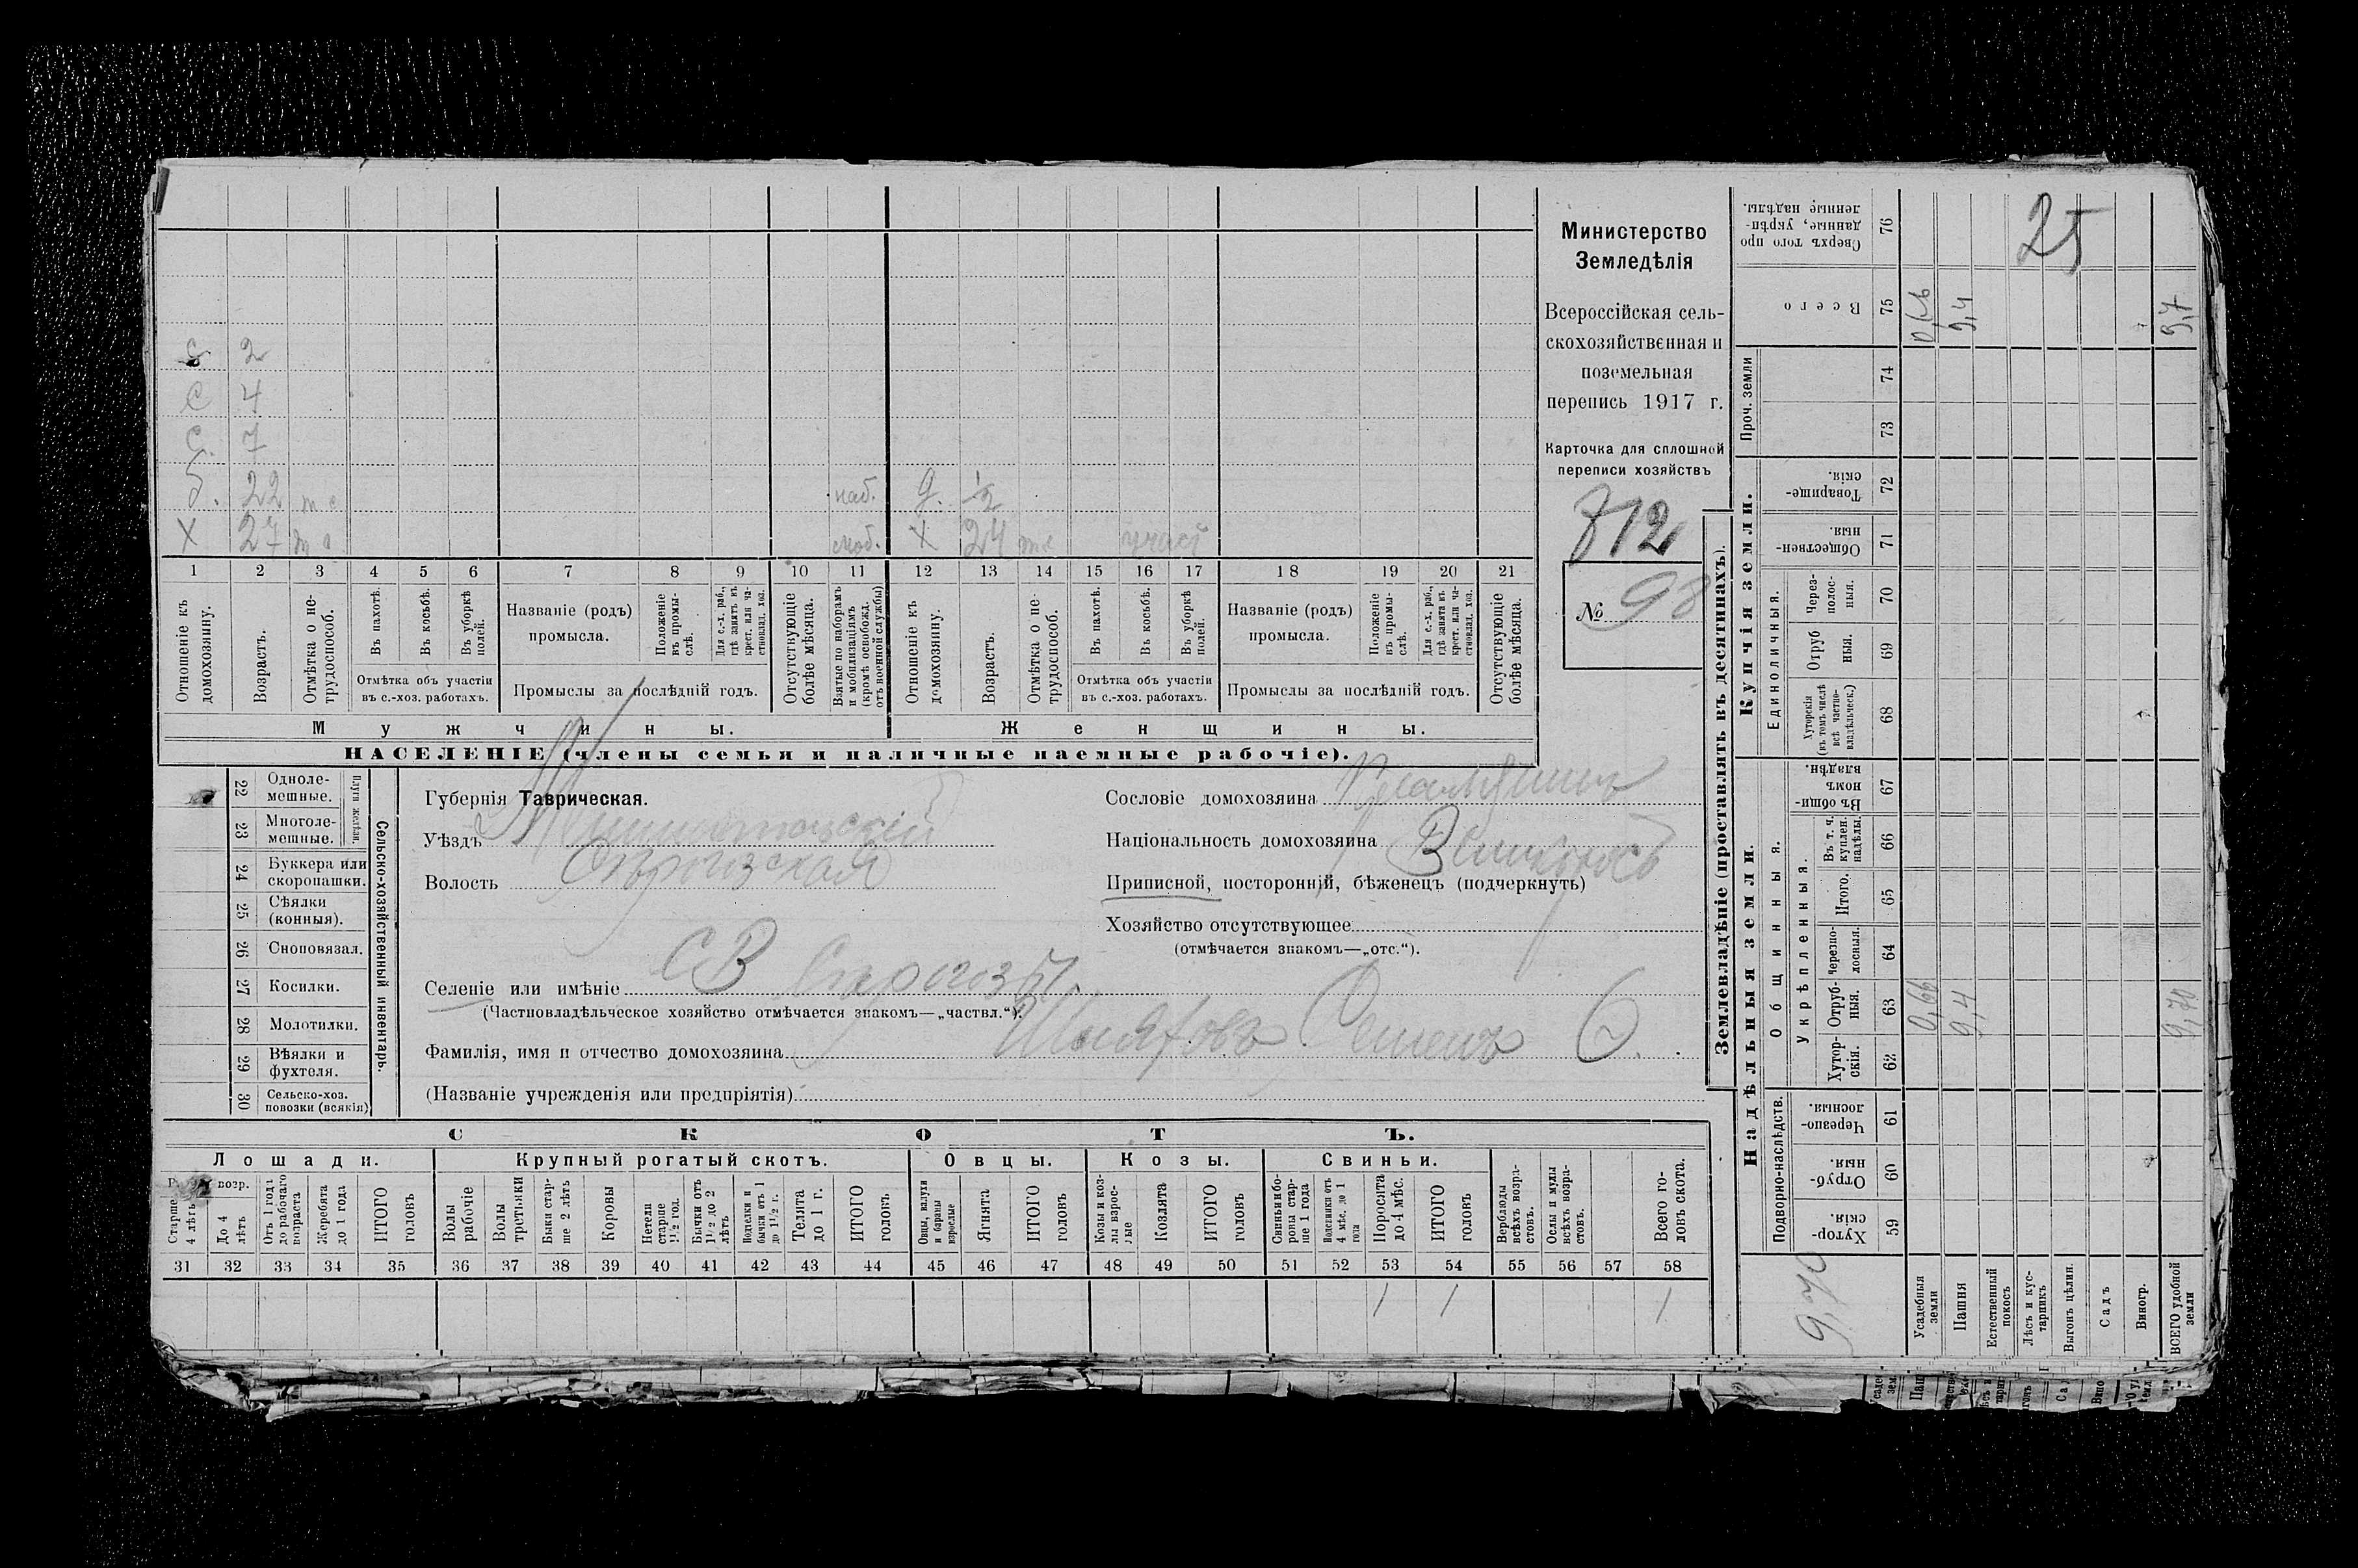 с 2
с 4
с. 7
б. 22 наб. д. ½
Х 27 моб. Х 24
1 2 3 4 5 6 7 8 9 10 11 12 13 14 15 16 17 18 19 20 21
Отношеніе къ домохозяину.
Возрастъ.
Отмѣтка о не-трудоспособ.
Въ пахотѣ.
Въ косьбѣ.
Въ уборкѣ полей.
Отмѣтка объ участіи
въ с.-хоз. работахъ.
Названіе (родъ)
промысла.
Положеніе въ промы-слѣ.
Для с.-х. раб., гдѣ занятъ въ крест. или ча-стновлад. хоз.
Промыслы за послѣдній годъ.
Отсутствующіе болѣе мѣсяца.
Взятые по наборамъ и мобилизаціямъ (кромѣ освобожд. отъ военной службы)
Отношеніе къ домохозяину.
Возрастъ.
Отмѣтка о не-трудоспособ.
Въ пахотѣ.
Въ косьбѣ.
Въ уборкѣ полей.
Отмѣтка объ участіи
въ с.-хоз. работахъ.
Названіе (родъ)
промысла.
Положеніе въ промы-слѣ.
Для с.-х. раб., гдѣ занята въ крест. или ча-стновлад. хоз.
Промыслы за послѣдній годъ.
Отсутствующіе болѣе мѣсяца.
Мужчины. Женщины.
НАСЕЛЕНІЕ (члены семьи и наличные наемные рабочіе).
Министерство
Земледѣлія
Всероссійская сель-
скохозяйственная и
поземельная
перепись 1917 г.
Карточка для сплошной
переписи хозяйствъ
712
№ 98
22 Одноле-мешные.
23 Многоле-мешные.
Плуги желѣзн.
24 Буккера или скоропашки.
25 Сѣялки (конныя).
26 Сноповязал.
27 Косилки.
28 Молотилки.
29 Вѣялки и фухтеля.
30 Сельско-хоз. повозки (всякія)
Сельско-хозяйственный инвентарь.
Губернія Таврическая.
Уѣздъ Мелитопольскій
Волость
Селеніе или имѣніе Серогозы
(Частновладѣльческое хозяйство отмѣчается знакомъ—„частвл.“).
Фамилія, имя и отчество домохозяина Семенъ
(Названіе учрежденія или предпріятія)
Сословіе домохозяина
Національность домохозяина
Приписной, посторонній, бѣженецъ (подчеркнуть)
Хозяйство отсутствующее
(отмѣчается знакомъ—„отс.“).
СКОТЪ.
Лошади. Крупный рогатый скотъ. Овцы. Козы. Свиньи.
возр.
Старше 4 лѣтъ
До 4 лѣтъ
Отъ 1 года до рабочаго возраста
Жеребята до 1 года
ИТОГО головъ
Волы рабочіе
Волы третьяки
Быки стар-ше 2 лѣтъ
Коровы
Нетели старше 1½ год.
Бычки отъ 1½ до 2 лѣтъ
Подтелки и бычки отъ 1 до 1½ г.
Телята до 1 г.
ИТОГО головъ
Овцы, валухи и бараны взрослые
Ягнята
ИТОГО головъ
Козы и коз-лы взрос-лые
Козлята
ИТОГО головъ
Свиньи и бо-ровы стар-ше 1 года
Подсвинки отъ 4 мѣс. до 1 года
Поросята до 4 мѣс.
ИТОГО головъ
Верблюды всѣхъ возра-стовъ.
Ослы и мулы всѣхъ возра-стовъ.
Всего го-ловъ скота.
31 32 33 34 35 36 37 38 39 40 41 42 43 44 45 46 47 48 49 50 51 52 53 54 55 56 57 58
1 1 1
Землевладѣніе (проставлять въ десятинахъ).
Надѣльныя земли.
Купчія земли.
Проч. земли
Подворно-наслѣдств.
Общинныя.
Укрѣпленныя.
Единоличныя.
59 Хутор-скія.
60 Отруб-ныя.
61 Черезпо-лосныя.
62 Хутор-скія.
63 Отруб-ныя. 0,66 9,4 9,70
64 Черезпо-лосныя.
65 Итого.
66 Въ т. ч. куплен. надѣлы.
67 Въ общи-номъ владѣн.
68 Хуторскія (въ томъ числѣ всѣ частно-владѣльческ.)
69 Отруб ныя.
70 Через-полос-ныя.
71 Обществен-ныя.
72 Товарище-скія.
73
74
75 Всего 9,4 9,7
76 Сверхъ того про данные, укрѣп-ленные надѣлы.
25
9,70
Усадебныя земли
Пашня
Естественный покосъ
Лѣсъ и кус-тарникъ
Выгонъ цѣлин.
Садъ
Виногр.
ВСЕГО удобной земли